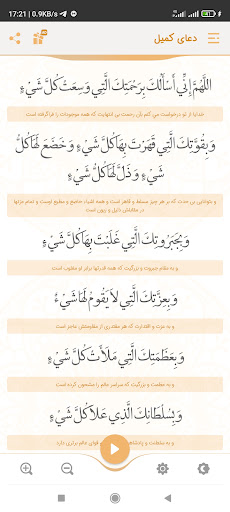 17:21 | 0.9KB/s
دعای کمیل
اللَّهُمَّ إِنِّي أَسْأَلُكَ بِرَحْمَتِكَ الَّتِي وَسِعَتْ كُلَّ شَيْءٍ
خدایا از تو درخواست می کنم بآن رحمت بی انتهایت که همه موجودات را فراگرفته است
وَ بِقُوَّتِكَ الَّتِي قَهَرْتَ بِهَا كُلَّ شَيْءٍ وَ خَضَعَ لَهَا كُلُّ
شَيْءٍ وَ ذَلَّ لَهَا كُلُّ شَيْءٍ
و بتوانایی بی حدت که بر هر چیز مسلط و قاهر است و همه اشیاء خاضع و مطیع اوست و تمام عزتها
در مقابلش ذلیل و زبون است
وَ بِجَبَرُوتِكَ الَّتِي غَلَبْتَ بِهَا كُلَّ شَيْءٍ
و به مقام جبروت و بزرگیت که همه قدرتها برابر او مغلوب است
وَ بِعِزَّتِكَ الَّتِي لاَ يَقُومُ لَهَا شَيْءٌ
و به عزت و اقتدارت که هر مقتدری از مقاومتش عاجز است
وَ بِعَظَمَتِكَ الَّتِي مَلَأَتْ كُلَّ شَيْءٍ
و به عظمت و بزرگیت که سراسر عالم را مشحون کرده است
وَ بِسُلْطَانِكَ الَّذِي عَلاَ كُلَّ شَيْءٍ
و به سلطنت و پادشاه قوای عالم برتری دارد